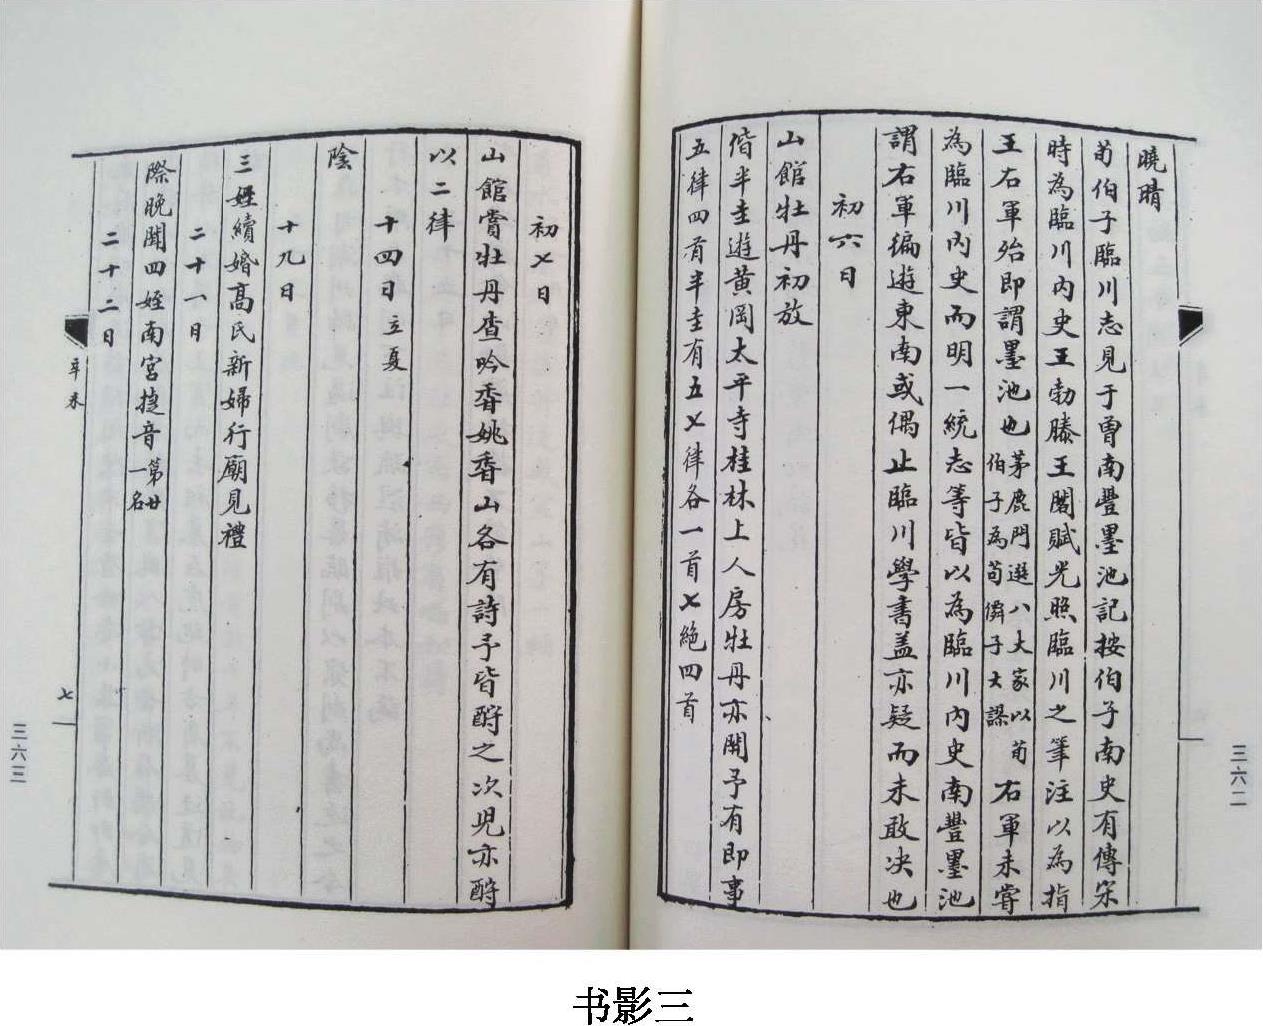 曉晴
荀伯子臨川志見于曾南豐墨池記按伯子南史有傳宋
時為臨川內史王勃滕王閣賦光照臨川之筆注以為指
王右軍殆即謂墨池也茅鹿門選八大家以荀伯子為荀儕子大謬右軍未嘗
為臨川內史而明一統志等皆以為臨川內史南豐墨池
謂右軍徧遊東南或偶止臨川學書盖亦疑而未敢决也
初六日
山館牡丹初放
偕半圭遊黃岡太平寺桂林上人房牡丹亦開予有即事
五律四首半圭有五七律各一首七絕四首
三六二
初七日
山館賞牡丹查吟香姚香山各有詩予皆酧之次兒亦酧
以二律
十四日立夏
陰
十九日
三姪續婚高氏新婦行廟見禮
二十一日
際晚聞四姪南宮捷音第廿一名
二十二日
辛未
七
三六三
书影三